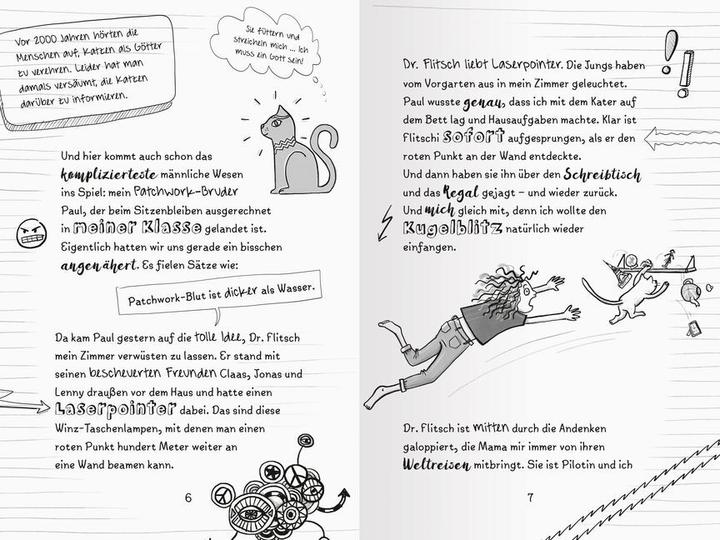 Vor 2000 Jahren hörten die
Menschen auf, Katzen als Götter
zu verehren. Leider hat man
damals versäumt, die Katzen
darüber zu informieren.
Sie füttern und
streicheln mich ... Ich
muss ein Gott sein!
Und hier kommt auch schon das
komplizierteste männliche Wesen
ins Spiel: mein Patchwork-Bruder
Paul, der beim Sitzenbleiben ausgerechnet
in meiner Klasse gelandet ist.
Eigentlich hatten wir uns gerade ein bisschen
angenähert. Es fielen Sätze wie:
Patchwork-Blut ist dicker als Wasser.
Da kam Paul gestern auf die tolle Idee, Dr. Flitsch
mein Zimmer verwüsten zu lassen. Er stand mit
seinen bescheuerten Freunden Claas, Jonas und
Lenny draußen vor dem Haus und hatte einen
Laserpointer dabei. Das sind diese
Winz-Taschenlampen, mit denen man einen
roten Punkt hundert Meter weiter an
eine Wand beamen kann.
6
Dr. Flitsch liebt Laserpointer. Die Jungs haben
vom Vorgarten aus in mein Zimmer geleuchtet.
Paul wusste genau, dass ich mit dem Kater auf
dem Bett lag und Hausaufgaben machte. Klar ist
Flitschi sofort aufgesprungen, als er den
roten Punkt an der Wand entdeckte.
Und dann haben sie ihn über den Schreibtisch
und das Regal gejagt – und wieder zurück.
Und mich gleich mit, denn ich wollte den
Kugelblitz natürlich wieder
einfangen.
Dr. Flitsch ist mitten durch die Andenken
galoppiert, die Mama mir immer von ihren
Weltreisen mitbringt. Sie ist Pilotin und ich
7